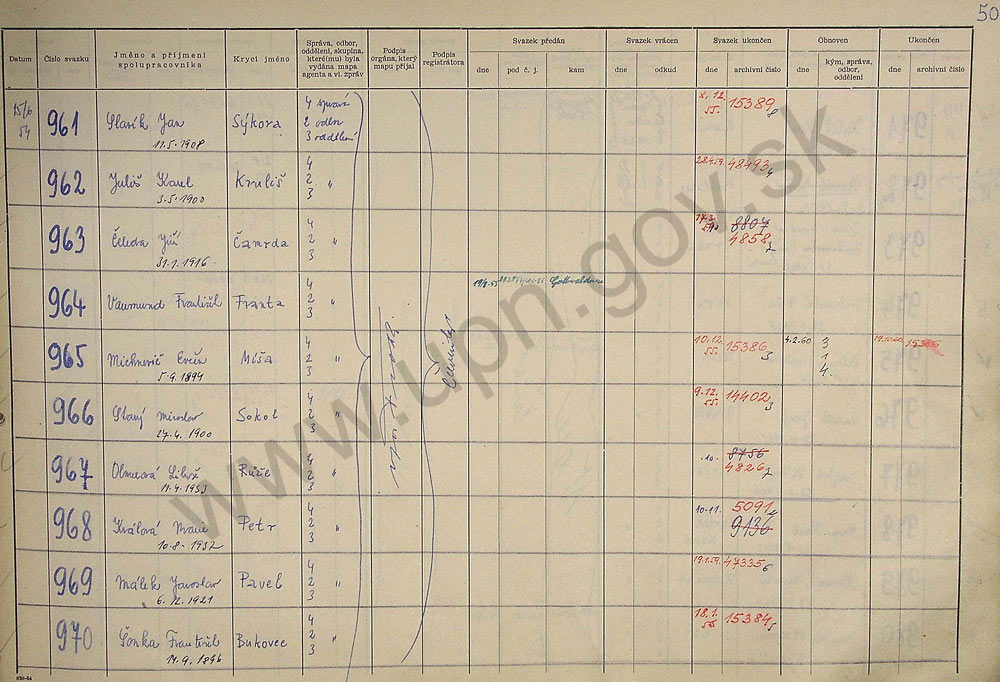 50
Datum
Číslo svazku
Jméno a příjmení
spolupracovníka
Krycí jméno
Správa, odbor,
oddělení, skupina,
které(mu) byla
vydána mapa
agenta a vl. zpráv
Podpis
orgána, který
mapu přijal
Podpis
registrátora
Svazek předán
dne
pod č. j.
kam
Svazek vrácen
dne
odkud
Svazek ukončen
dne
archivní číslo
Obnoven
dne
kým, správa,
odbor,
oddělení
Ukončen
dne
archivní číslo
15/6
54
961
Slavík Jan
11.5.1908
Sýkora
4 správa
2 odbor
3 oddělení
8. 12.
55.
15389
8
962
Juliš Karel
3.5.1900
Kruliš
4
2 "
3
28.4.59.
48493
4
963
Čeleda Jiří
31.1.1916
Čamrda
4
2 "
3
8807
4858
2
964
František
Franta
4
2 "
3
19/9-55
965
Michnevič Evžen
5.9.1894
Míša
4
2 "
3
10.12.
55.
15386
5
4.2.60.
3
1
4.
19.10.60.
966
Starý Miroslav
27.4.1900
Sokol
4
2 "
3
9.12.
55.
14402
3
967
11.4.1933
Růže
4
2 "
3
.10.
8756
4826
2
968
Králová Marie
10.8.1932
Petr
4
2 "
3
10.11.
5091
4
9136
969
Málek Jaroslav
6.12.1921
Pavel
4
2 "
3
19.1.59.
47335
6
970
Šonka František
14.9.1896
Bukovec
4
2 "
3
18.1.
56
15384
5
www.upn.gov.sk